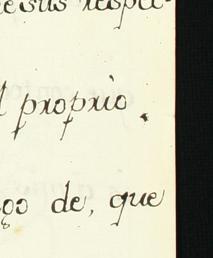 esus respec-
l proprio.
go de, que